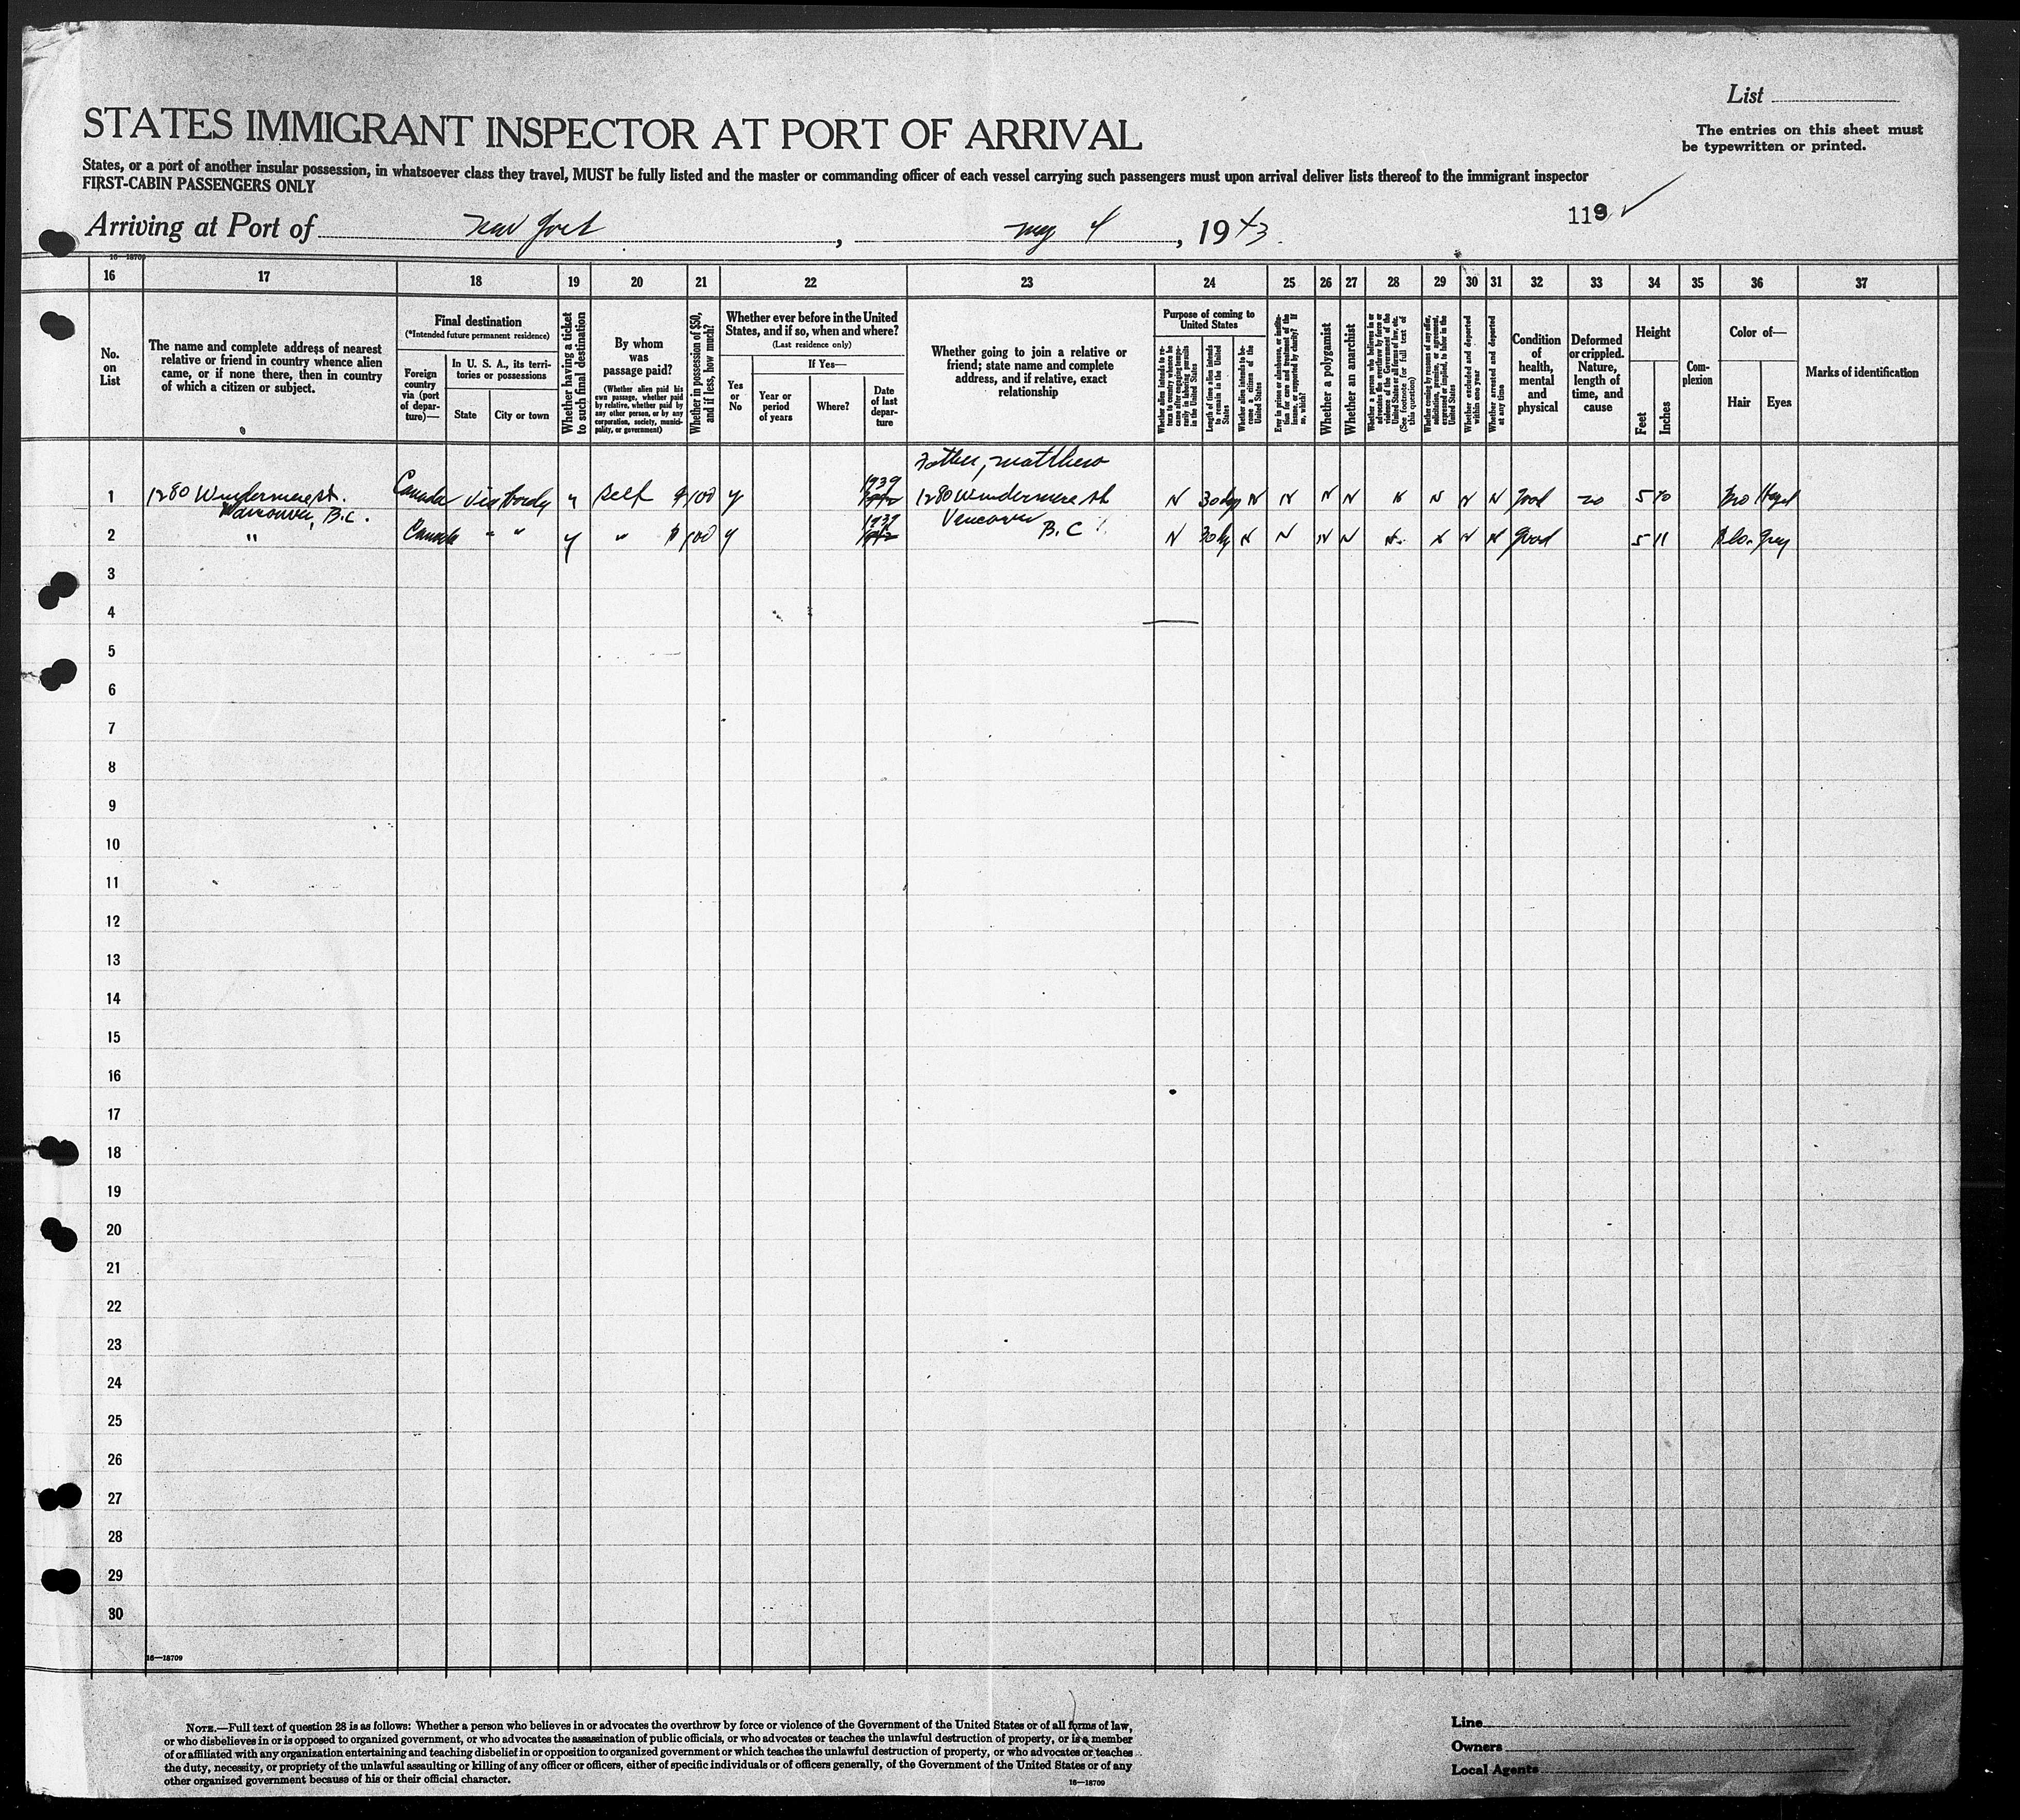 List
STATES IMMIGRANT INSPECTOR AT PORT OF ARRIVAL
The entries on this sheet must
be typewritten or printed.
States, or a port of another insular possession, in whatsoever class they travel, MUST be fully listed and the master or commanding officer of each vessel carrying such passengers must upon arrival deliver lists thereof to the immigrant inspector
FIRST-CABIN PASSENGERS ONLY
119
Arriving at Port of New York , May 4 , 1943.
16—18709
16 17 18 19 20 21 22 23 24 25 26 27 28 29 30 31 32 33 34 35 36 37
No.
on
List
The name and complete address of nearest
relative or friend in country whence alien
came, or if none there, then in country
of which a citizen or subject.
Final destination
(*Intended future permanent residence)
Foreign
country
via (port
of depar-
ture)—
In U. S. A., its terri-
tories or possessions
State
City or town
Whether having a ticket
to such final destination
By whom
was
passage paid?
(Whether alien paid his
own passage, whether paid
by relative, whether paid by
any other person, or by any
corporation, society, munici-
pality, or government)
Whether in possession of $50,
and if less, how much?
Whether ever before in the United
States, and if so, when and where?
(Last residence only)
Yes
or
No
If Yes—
Year or
period
of years
Where?
Date
of last
depar-
ture
Whether going to join a relative or
friend; state name and complete
address, and if relative, exact
relationship
Purpose of coming to
United States
Whether alien intends to re-
turn to country whence he
came after engaging tempo-
rarily in laboring pursuits
in the United States
Length of time alien intends
to remain in the United
States
Whether alien intends to be-
come a citizen of the
United States
Ever in prison or almshouse, or institu-
tion for care and treatment of the
insane, or supported by charity? If
so, which?
Whether a polygamist
Whether an anarchist
Whether a person who believes in or
advocates the overthrow by force or
violence of the Government of the
United States or all forms of law, etc.
(See footnote for full text of
this question)
Whether coming by reasons of any offer,
solicitation, promise, or agreement,
expressed or implied, to labor in the
United States
Whether excluded and deported
within one year
Whether arrested and deported
at any time
Condition
of
health,
mental
and
physical
Deformed
or crippled.
Nature,
length of
time, and
cause
Height
Feet
Inches
Com-
plexion
Color of—
Hair
Eyes
Marks of identification
Father, Matthew
1 1280 Windermere St. Canada via Y Self $100 Y 1939 1280 Windermere St N 30 days N N N N N N N N Good no 5 10 Bro Hazel
Vancouver, B.C. Vancouver
2 " Canada " " Y " $100 Y 1939 B.C. N 30 dy N N N N N N N N Good 5 11 Blo. Grey
3
4
5
6
7
8
9
10
11
12
13
14
15
16
17
18
19
20
21
22
23
24
25
26
27
28
29
30
16—18709
NOTE.—Full text of question 28 is as follows: Whether a person who believes in or advocates the overthrow by force or violence of the Government of the United States or of all forms of law,
or who disbelieves in or is opposed to organized government, or who advocates the assassination of public officials, or who advocates or teaches the unlawful destruction of property, or is a member
of or affiliated with any organization entertaining and teaching disbelief in or opposition to organized government or which teaches the unlawful destruction of property, or who advocates or teaches
the duty, necessity, or propriety of the unlawful assaulting or killing of any officer or officers, either of specific individuals or of officers generally, of the Government of the United States or of any
other organized government because of his or their official character.
16—18709
Line
Owners
Local Agents